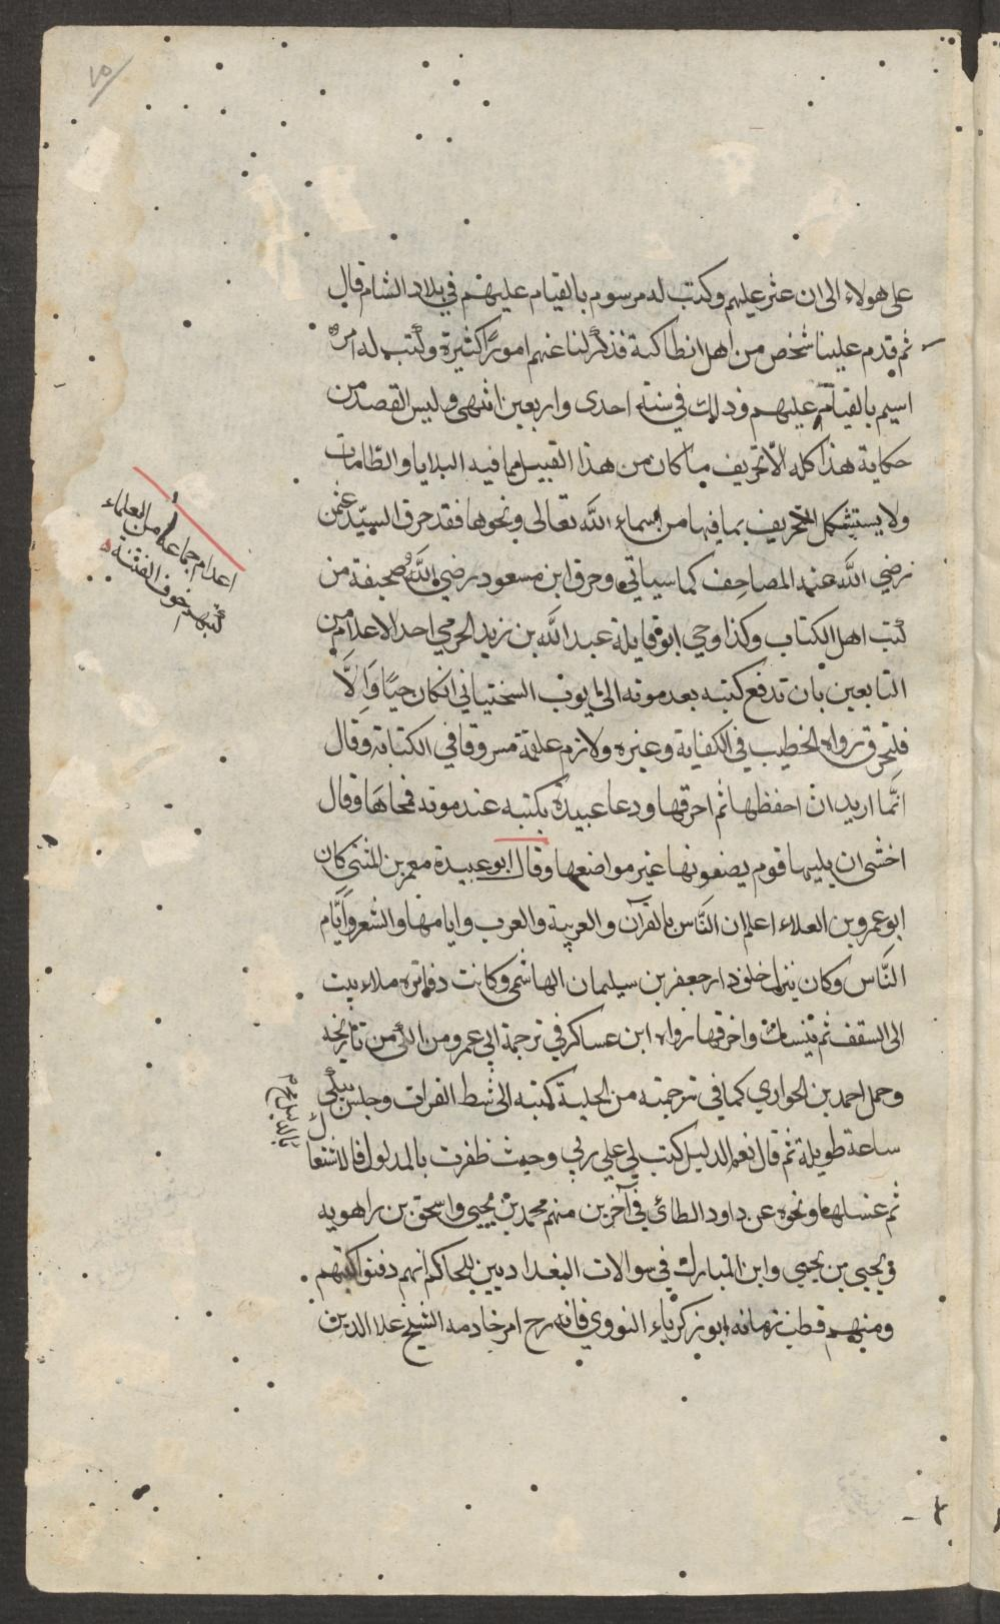 ٧٥
على هولاء الى ان عثر عليهم وكتب له مرسوم بالقيام عليهم في بلاد الشام قال
ثم قدم علينا شخص من اهل انطاكية فذكر لنا عنهم امورًا كثيرة وكتب له امرٌ
اسيم بالقيام عليهم وذلك في سنة احدى واربعين انتهى وليس القصد من
حكاية هذا كله الا تحريف ما كان من هذا القبيل مما فيه البلايا والطامات
ولا يستشكل التحريف بما فيها من اسماء الله تعالى ونحوها فقد حرق السيد عثمن
رضي الله عنه المصاحف كما سياتي وحرق ابن مسعود رضي الله صحيفة من
كتب اهل الكتاب وكذا وحي ابو قايلة عبد الله بن زيد الجرمي احد الاعلام من
التابعين بان تدفع كتبه بعد موته الى ايوب السختياني ان كان حيًا وَاِلَّا
فلتحرق رواه الخطيب في الكفاية وغيره ولازم علقمة مسروقا في الكتابة وقال
انَّما اريد ان احفظها ثم احرقها ودعا عبيدة بكتبه عند موته فمحاهَا وقال
اخشى ان يليها قوم يضعونها غير مواضعها وقال ابو عبيدة معمر بن المثنى كان
ابو عمرو بن العلاء اعلم ان النَّاس بالقرآن والعربية والعرب وايامها والشعر وايَّام
النَّاس وكان ينزل خلف دار جعفر بن سليمان الهاشمي وكانت دفاتره ملاء بيت
الى السقف ثم تنسك واحرقها رواه ابن عساكر في ترجمة ابي عمرو من الكنى من تاريخه
وحمل احمد بن الحواري كما في ترجمته من الحلية كتبه الى شط الفرات وجلس يبكي
ساعة طويلة ثم قال نعم الدليل كنت لي على ربي وحيث ظفرت بالمدلول فالاشتغا
ل
ثم غسلها ونحوه عن داود الطائي في آخرين منهم محمد بن يحيى واسحق بن راهويه
ويحيى بن يحيى وابن المبارك في سوالات البغداديين للحاكم انهم دفنوا كتبهم
ومنهم قطب زمانه ابو زكرياء النووي فانه رح امر خادمه الشيخ علا الدين
اعدام جماعة من العلماء
كتبهم خوف الفتنة